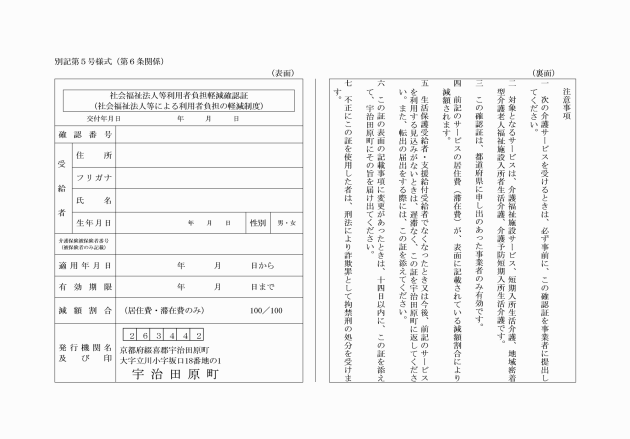 別記第5号様式（第6条関係）
（表面）
社会福祉法人等利用者負担軽減確認証
（社会福祉法人等による利用者負担の軽減制度）
交付年月日　年　月　日
確認番号
受給者
住所
フリガナ
氏名
生年月日　年　月　日　性別　男・女
介護保険被保険者番号
（被保険者のみ記載）
適用年月日　年　月　日から
有効期限　年　月　日まで
減額割合　（居住費・滞在費のみ）　100／100
発行機関名
及び印
263442
京都府綴喜郡宇治田原町
大字立川小字坂口18番地の1
宇治田原町
（裏面）
注意事項
一　次の介護サービスを受けるときは、必ず事前に、この確認証を事業者に提出し
てください。
二　対象となるサービスは、介護福祉施設サービス、短期入所生活介護、地域密着
型介護老人福祉施設入所者生活介護、介護予防短期入所生活介護です。
三　この確認証は、都道府県に申し出のあった事業者のみ有効です。
四　前記のサービスの居住費（滞在費）が、表面に記載されている減額割合により
減額されます。
五　生活保護受給者・支援給付受給者でなくなったとき又は今後、前記のサービス
を利用する見込みがないときは、遅滞なく、この証を宇治田原町に返してくださ
い。また、転出の届出をする際には、この証を添えてください。
六　この証の表面の記載事項に変更があったときは、十四日以内に、この証を添え
て、宇治田原町にその旨を届け出てください。
七　不正にこの証を使用した者は、刑法により詐欺罪として拘禁刑の処分を受けま
す。